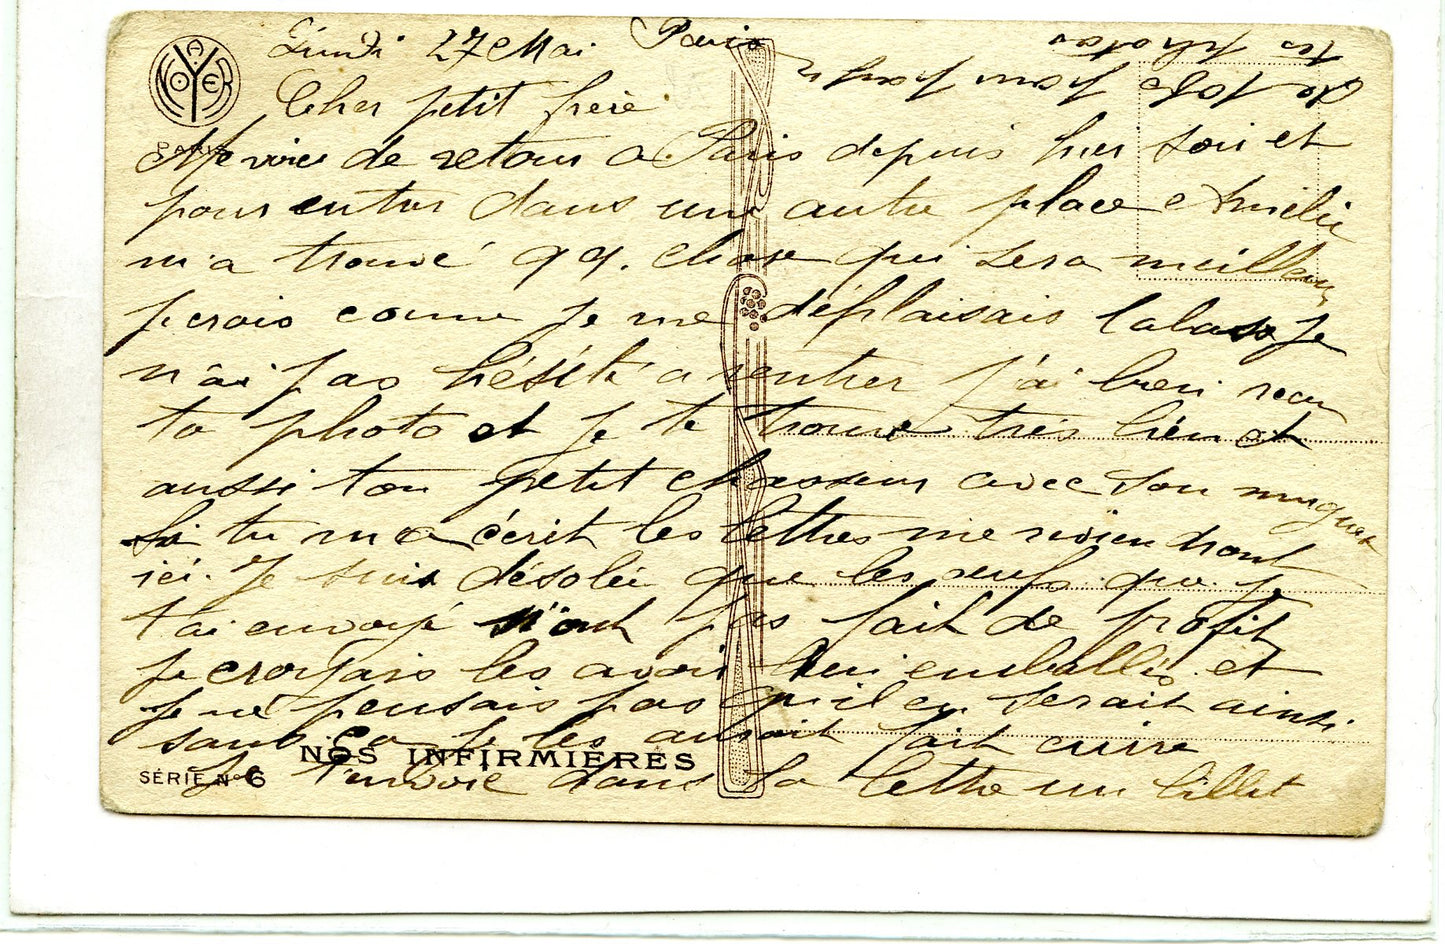 Lundi 27 Mai Paris
Cher petit frère
Me voici de retour a Paris depuis hier soir et
pour entrer dans une autre place Amélie
m'a trouvé qq. chose qui sera meilleur
je crois comme je me déplaisais labas je
n'ai pas hésité a rentrer j'ai bien recu
ta photo et je te trouve très bien et
aussi ton petit chasseur avec son muguet
Si tu m'a écrit les lettres me reviendront
ici. Je suis désolée que les œufs que je
t'ai envoyé n'ont pas fait de profit
je croyais les avoir bien emballés et
je ne pensais pas qu'il en serait ainsi
sans ça je les aurait fait cuire
Je t'envoie dans la lettre un billet
de 10f pour
tes photos
NOYER
PARIS
NOS INFIRMIÈRES
SÉRIE No 6